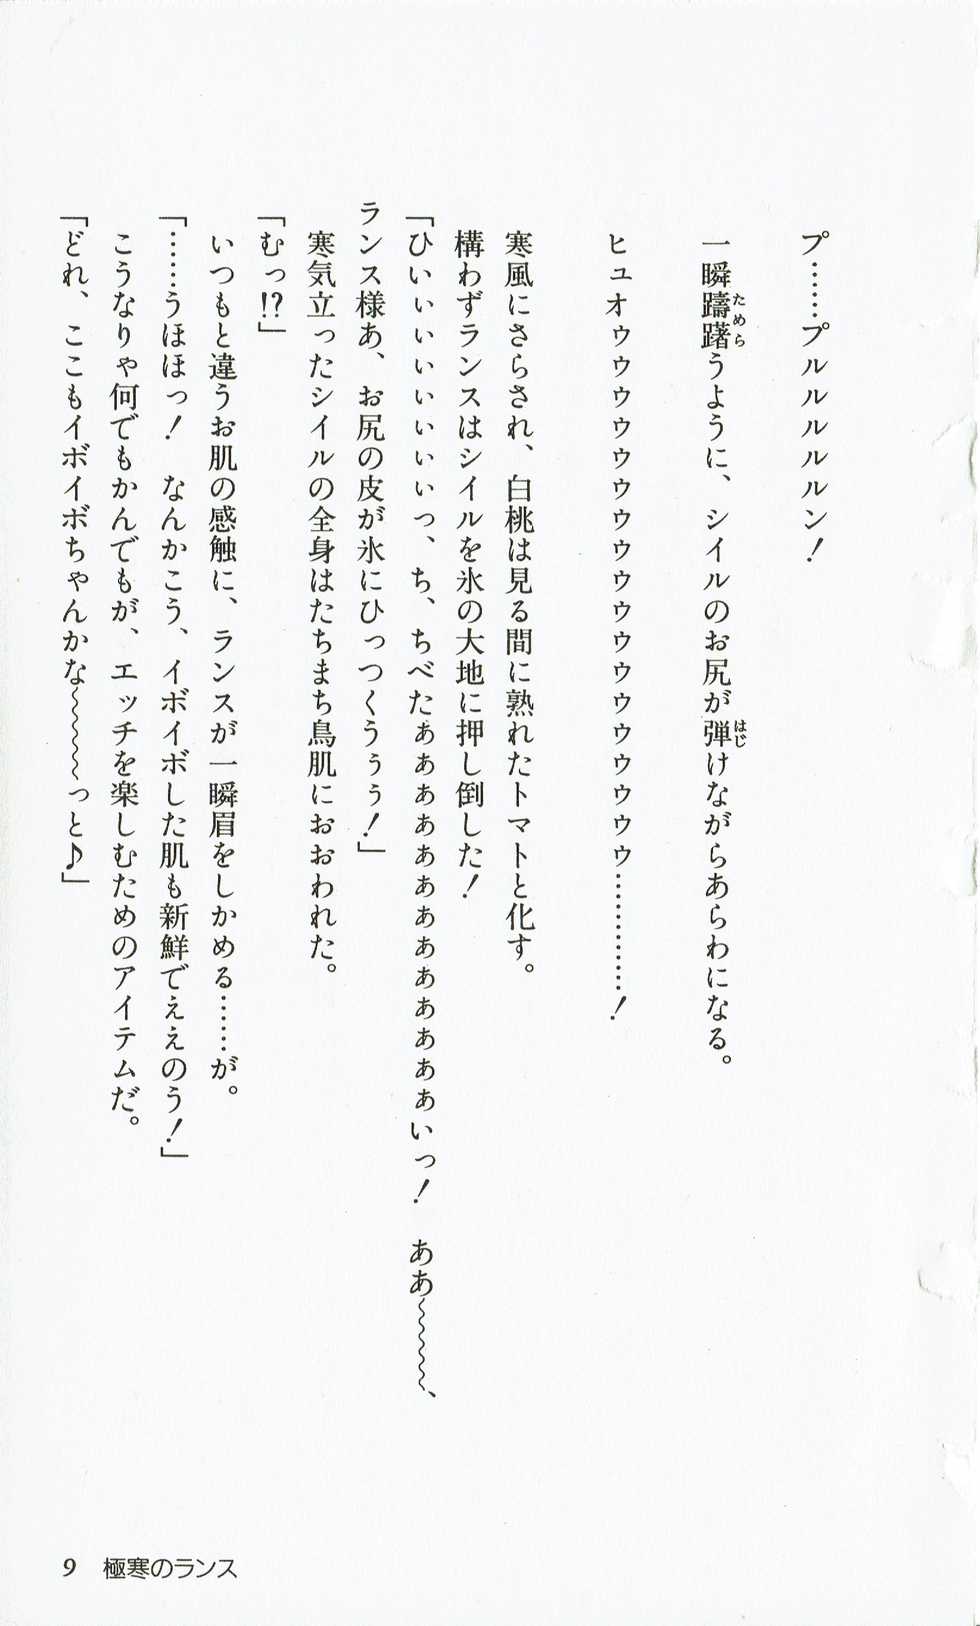 プ……プルルルルン！
一瞬躊躇うように、シイルのお尻が弾けながらあらわになる。
ヒュオゥゥゥゥゥゥゥゥゥゥゥゥゥゥゥゥゥゥ…………！
寒風にさらされ、白桃は見る間に熟れたトマトと化す。
構わずランスはシイルを氷の大地に押し倒した！
「ひいぃぃぃぃぃぃぃっ、ち、ちべたぁぁぁぁぁぁぁぁぁぁぁぁぁいっ！　ああ～～～～、
ランス様あ、お尻の皮が氷にひっつくうぅぅ！」
寒気立ったシイルの全身はたちまち鳥肌におおわれた。
「むっ!?」
いつもと違うお肌の感触に、ランスが一瞬眉をしかめる……が。
「……うほほっ！　なんかこう、イボイボした肌も新鮮でええのう！」
こうなりゃ何でもかんでもが、エッチを楽しむためのアイテムだ。
「どれ、ここもイボイボちゃんかな～～～～っと♪」
9 極寒のランス